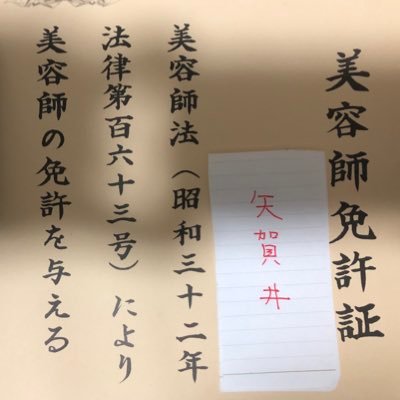 美容師免許証
矢賀井
美容師法（昭和三十二年
法律第百六十三号）により
美容師の免許を与える